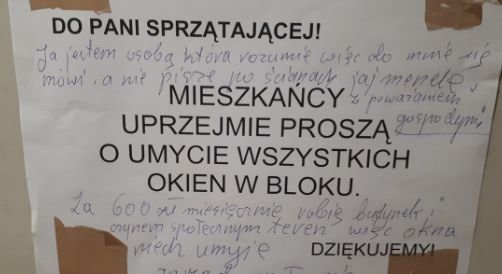 DO PANI SPRZĄTAJĄCEJ!
Ja jestem osobą która rozumie więc do mnie się
mówi, a nie pisze po ścianach jaj menele,
MIESZKAŃCY
z poważaniem
UPRZEJMIE PROSZĄ
gospodyni
O UMYCIE WSZYSTKICH
OKIEN W BLOKU.
Za 600 zł miesięcznie robię budynek i
czynem społecznym teren więc okna
niech umyje
DZIĘKUJEMY!